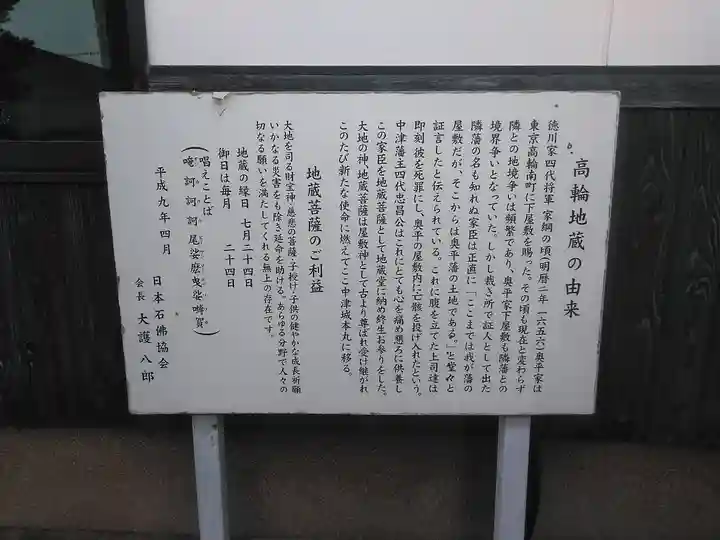 高輪地蔵の由来
徳川家四代将軍 家綱の頃(明暦二年 一六五六)奥平家は
東京高輪南町に下屋敷を賜った。その頃も現在と変わらず
隣との地境争いは頻繁であり、奥平家下屋敷も隣藩との
境界争いとなっていた。しかし裁き所で証人として出た
隣藩の名も知れぬ家臣は正直に「ここまでは我が藩の
屋敷だが、そこからは奥平藩の土地である。」と堂々と
証言したと伝えられている。これに腹を立てた上司達は
即刻 彼を死罪にし、奥平の屋敷内に亡骸を投げ入れたという。
中津藩主四代忠昌公はこれにとても心を痛め懇ろに供養し
この家臣を地蔵菩薩として地蔵堂に納め終生お参りをした。
大地の神、地蔵菩薩は屋敷神として古より尊ばれ受け継がれ
このたび新たな使命に燃えてここ中津城本丸に移る。
地蔵菩薩のご利益
大地を司る財宝神・慈悲の菩薩・子授け・子供の健やかな成長祈願
いかなる災害をも除き延命を助ける。あらゆる分野で人々の
切なる願いを満たしてくれる無上の存在です。
地蔵の縁日 七月二十四日
御日は毎月 二十四日
(唱えことば
唵 訶 訶 訶 尾娑麼曳 娑嚩賀)
平成九年四月
日本石佛協会
会長 大護八郎